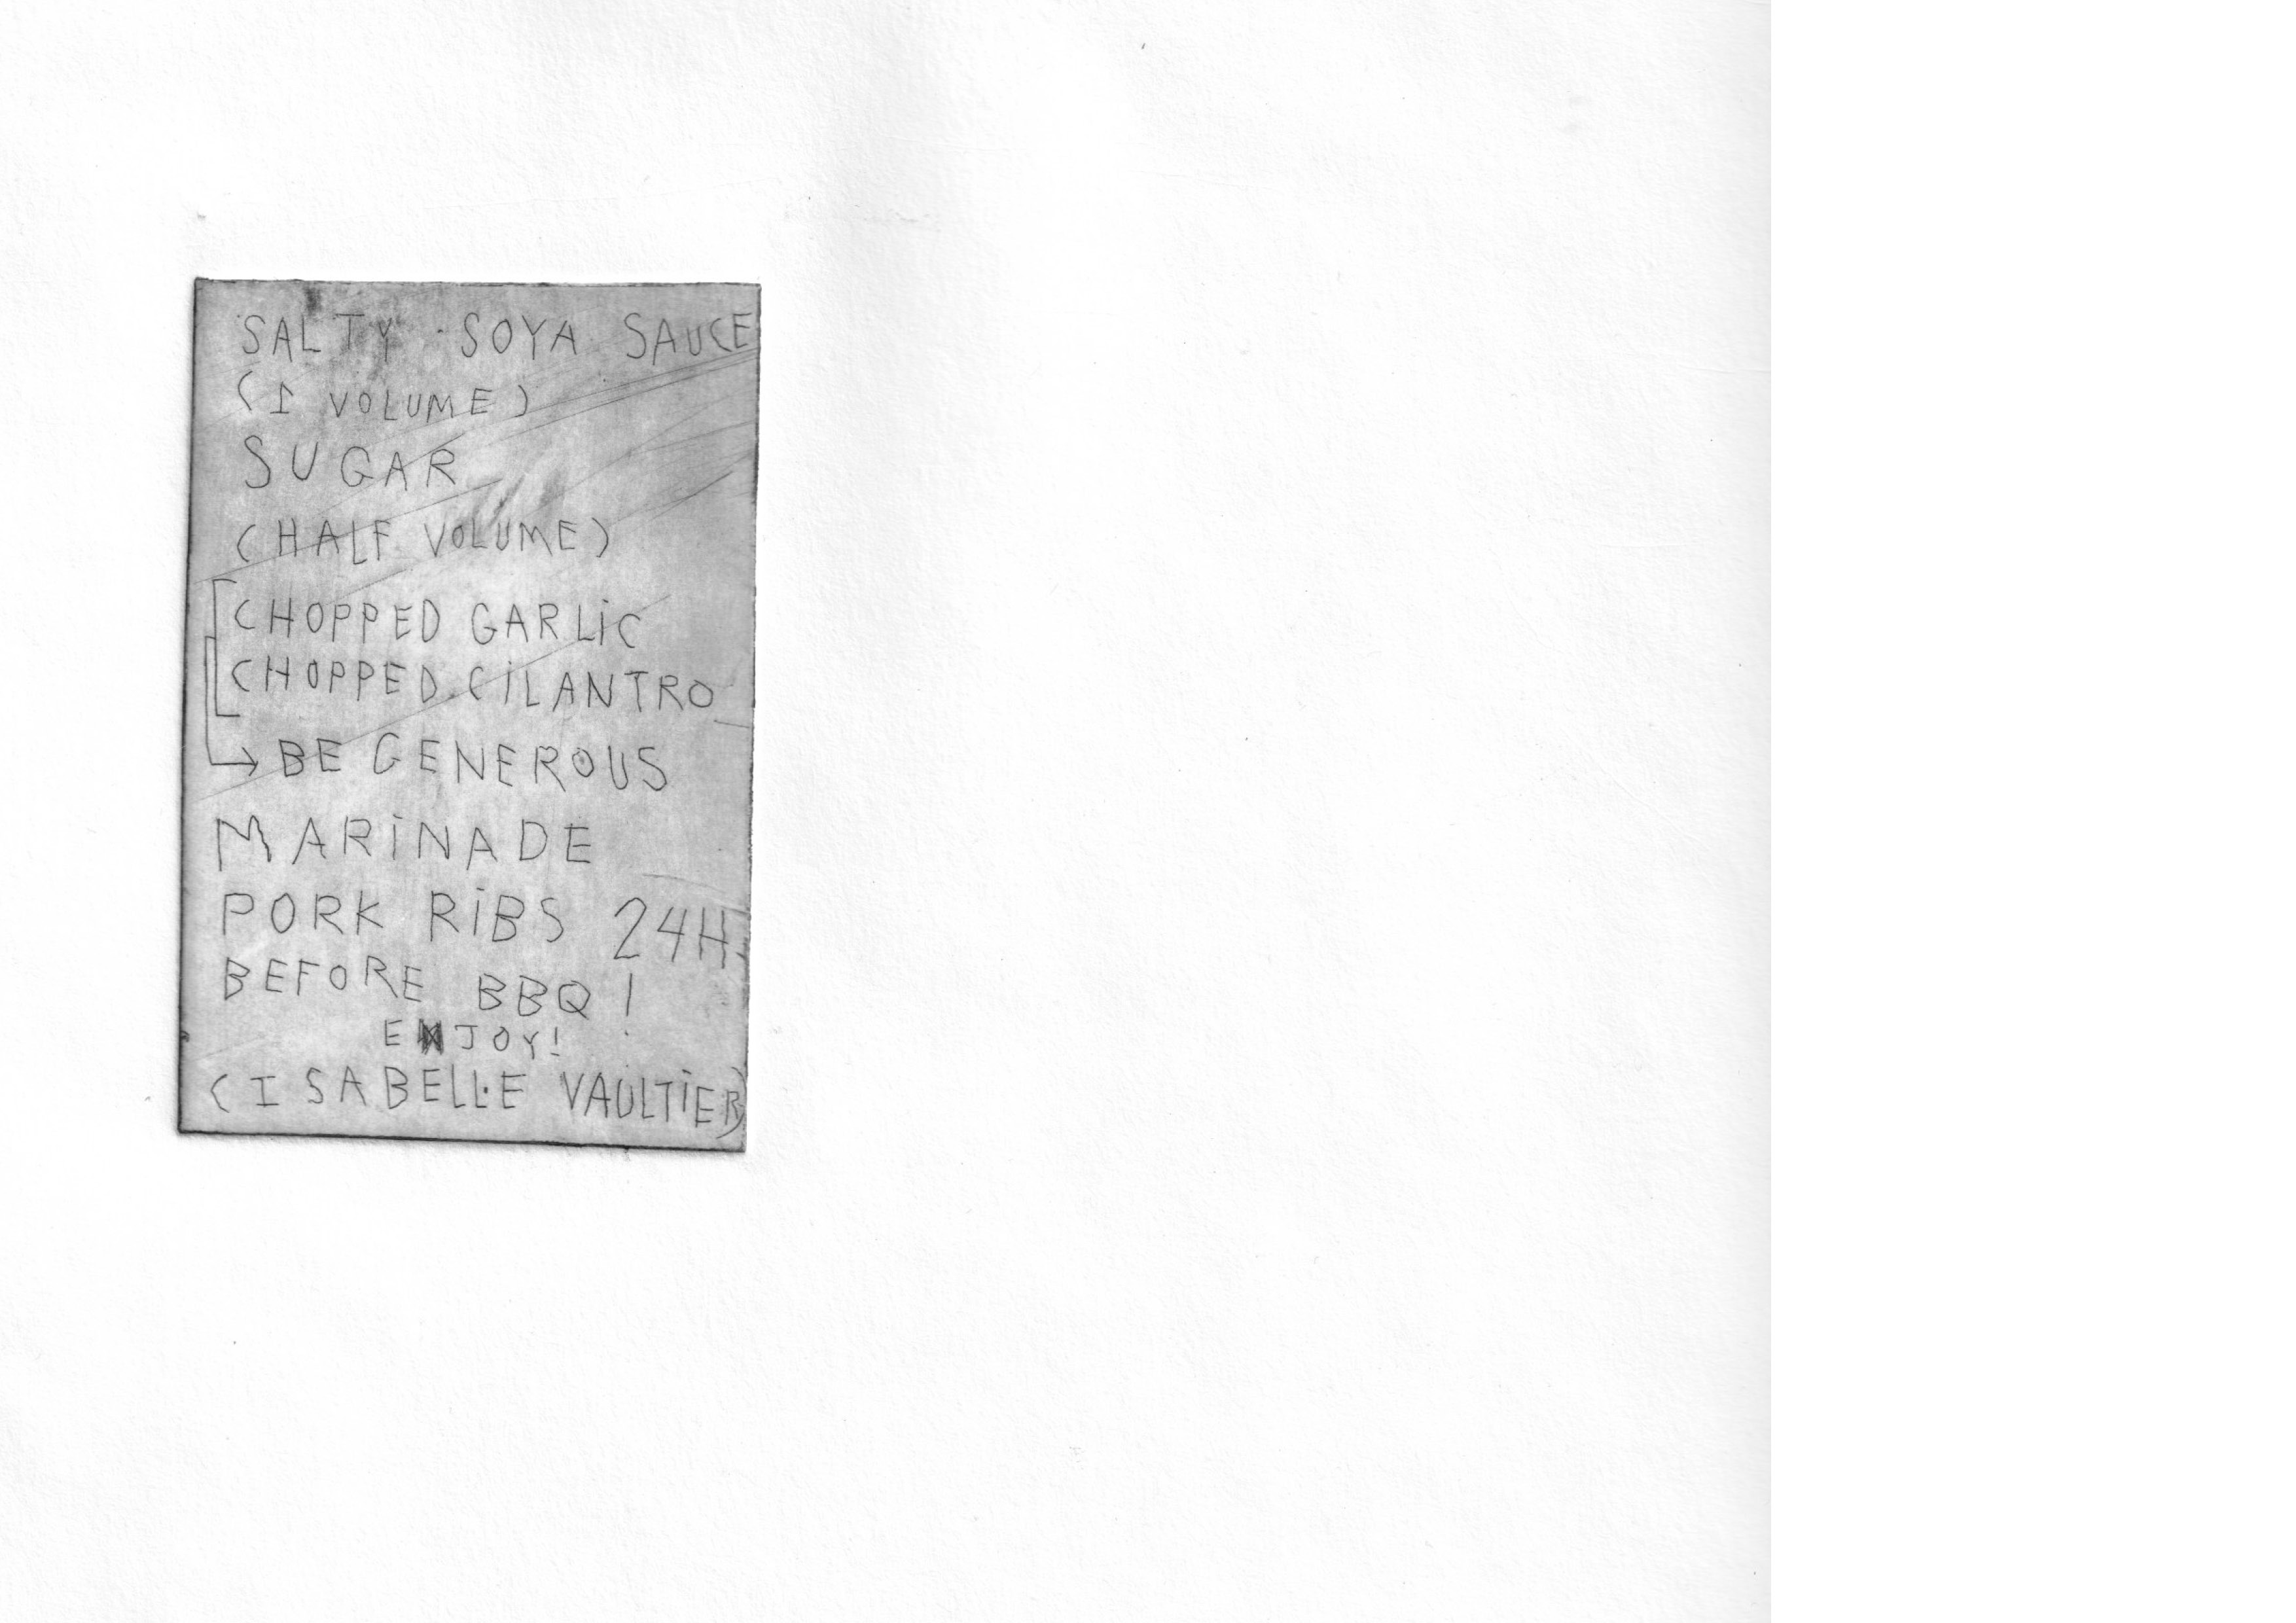 SALTY SOYA SAUCE
(1 VOLUME)
SUGAR
(HALF VOLUME)
CHOPPED GARLiC
CHOPPED CiLANTRO
→ BE GENEROUS
MARiNADE
PORK RiBS 24H
BEFORE BBQ!
ENJOY!
(ISABELLE VAULTiER)